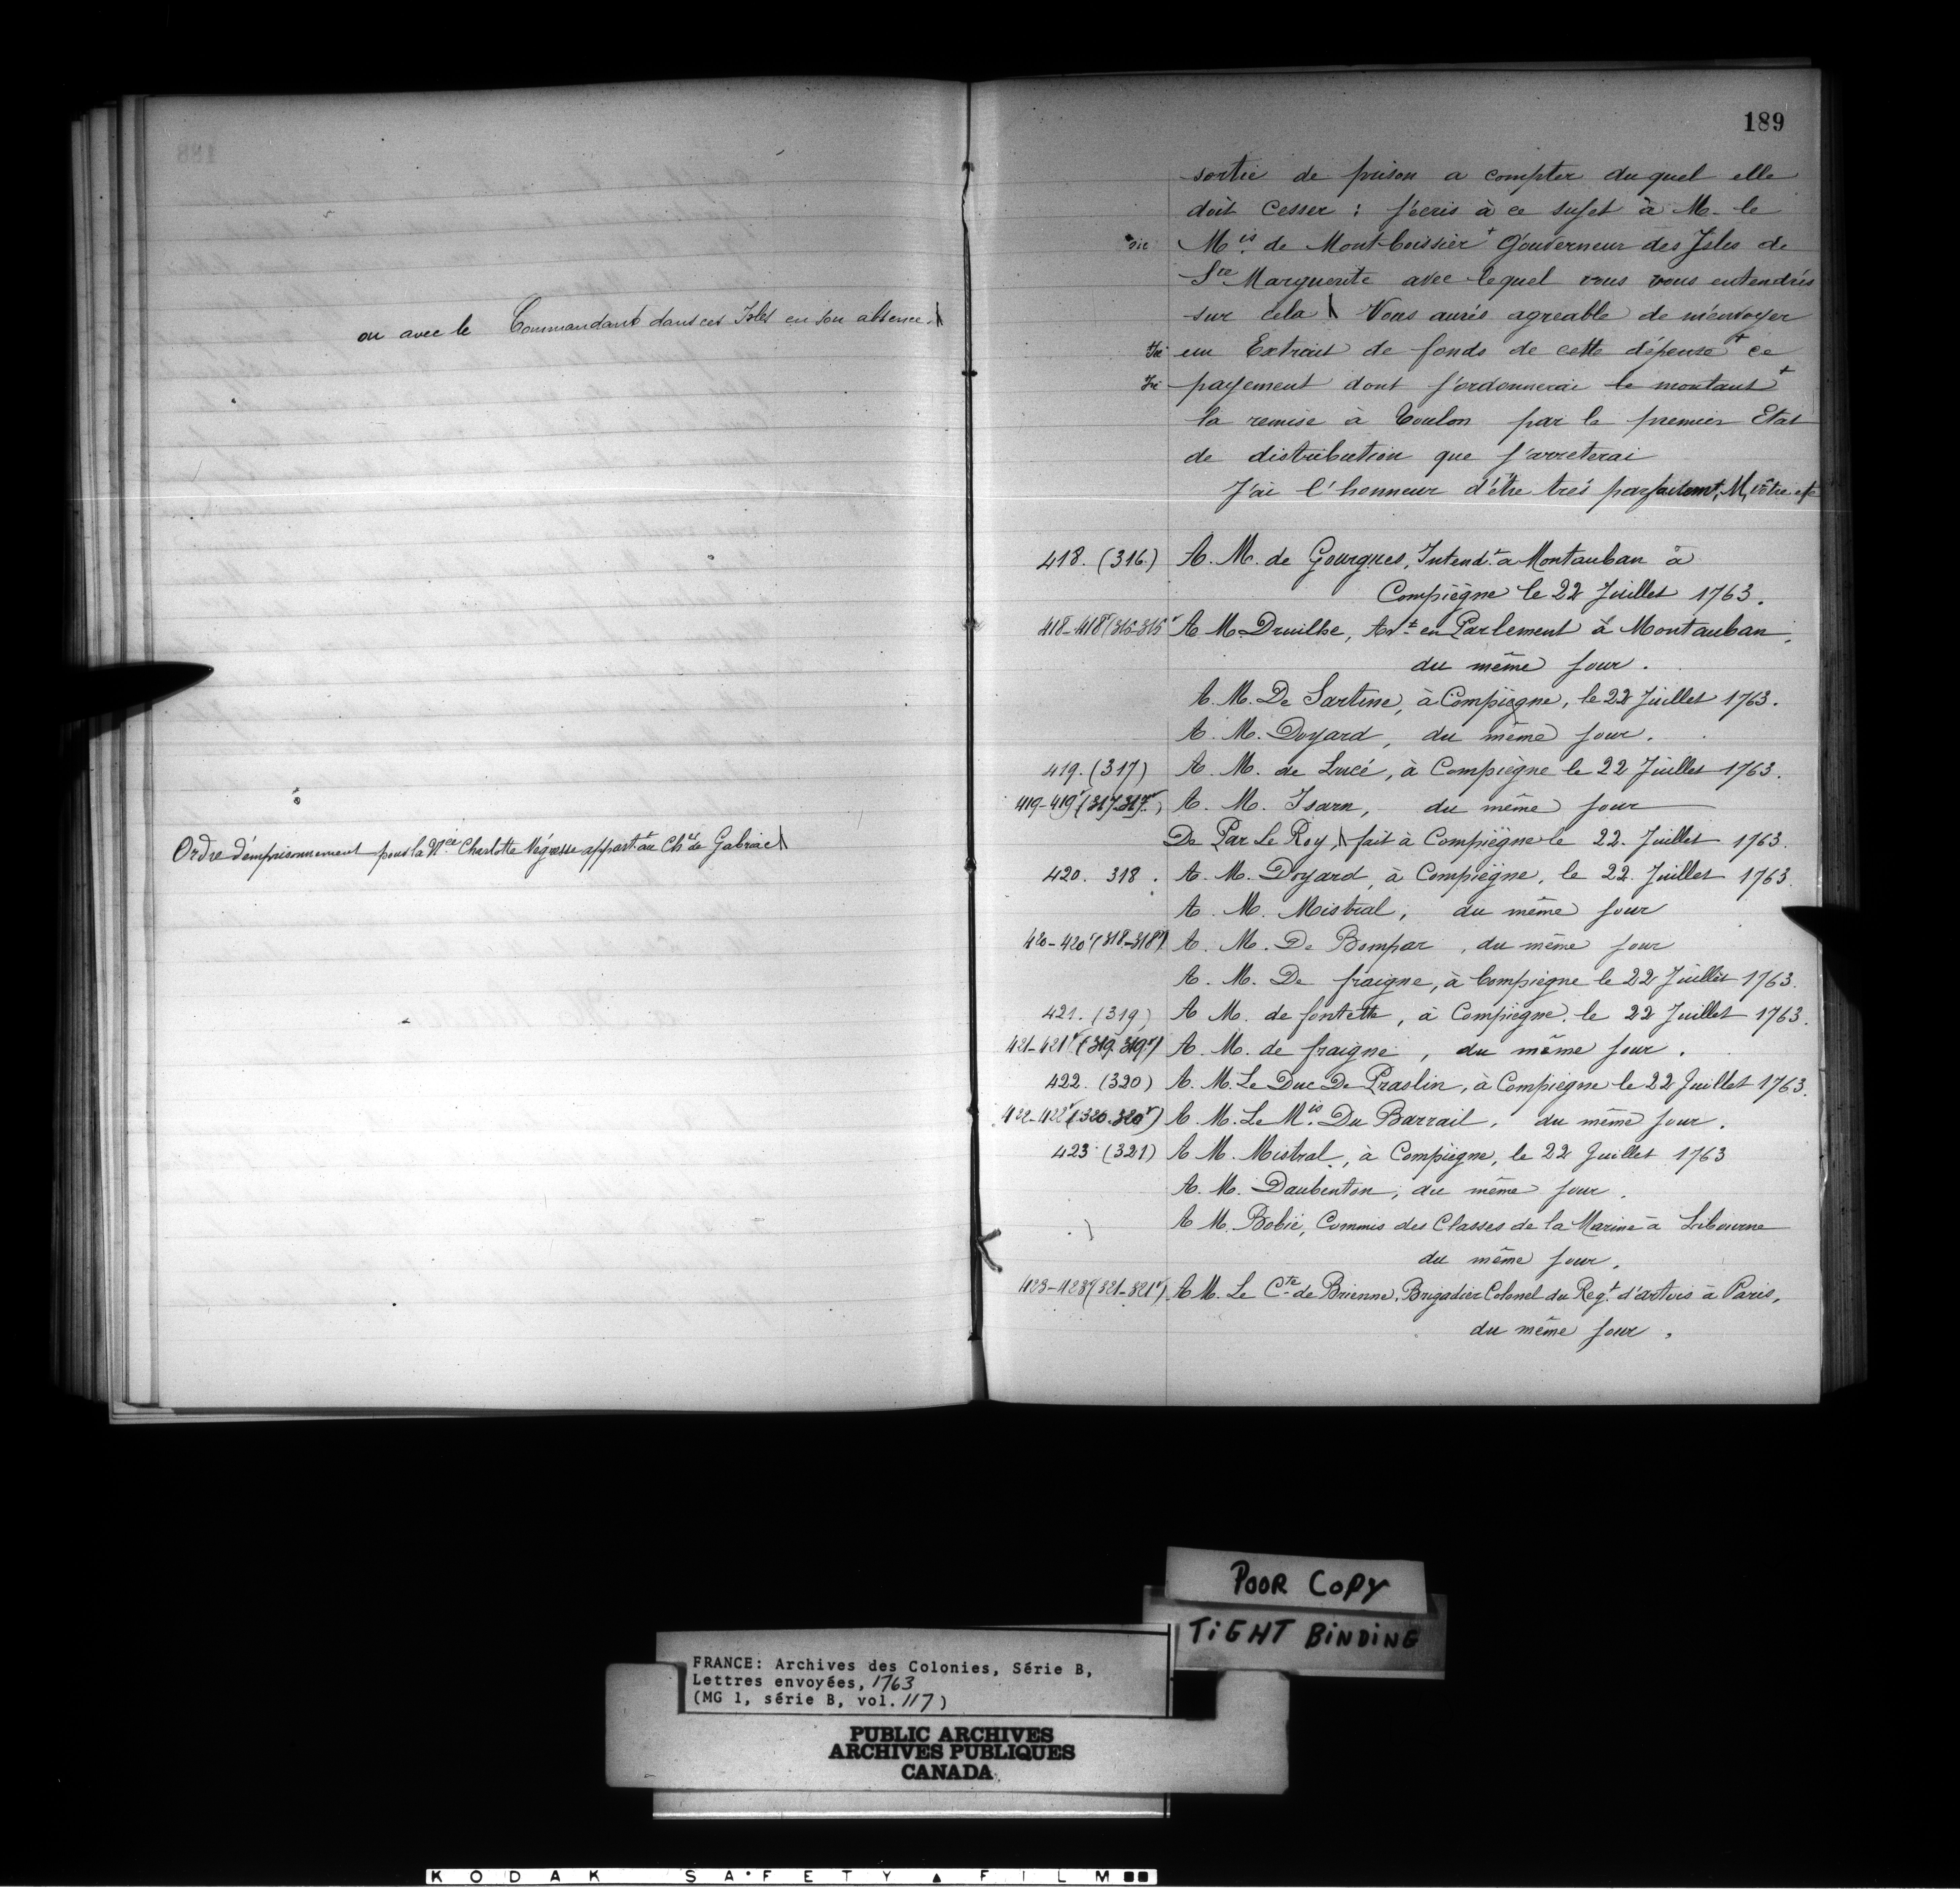 ou avec le Commandant dans ces Isles en son absence.
Ordre d'emprisonnement pour la Née Charlotte Négresse appart.t au Ch.er de Gabriac
189
sortie de prison a compter du quel elle
doit cesser : j'écris à ce sujet à M. le
sic M.is de Montboissier+ Gouverneur des Isles de
S.te Marguerite avec lequel vous vous entendrés
sur cela Vous aurés agreable de m'envoyer
sic un Extrait de fonds de cette dépense+ ce
sic payement dont j'ordonnerai le montant+
la remise à Toulon par le premier Etat
de distribution que j'arreterai
J'ai l'honneur d'être trés parfaitemt, M, vôtre etc
418. (316) A. M. de Gourgues, Intend.t a Montauban à
Compiègne le 22 Juillet 1763.
418-418v (316-316v A M. Druilhe, Av.t en Parlement à Montauban,
du même jour.
A. M. De Sartine, à Compiègne, le 22 Juillet 1763.
A. M. Doyard, du même jour.
419. (317) A. M. de Lucé, à Compiègne le 22 Juillet 1763.
419-419v (317-317v) A. M. Isarn, du même jour
De Par Le Roy, fait à Compiègne le 22. Juillet 1763.
420. 318. A. M. Doyard, à Compiègne, le 22. Juillet 1763.
A. M. Mistral, du même jour
420-420v (318-318v) A. M. De Bompar, du même jour
A. M. De fraigne, à Compiègne le 22 Juillet 1763.
421. (319) A M. de fontette, à Compiegne. le 22 Juillet 1763.
421-421v (319-319v) A. M. de fraigne, du même jour.
422. (320) A. M. Le Duc De Praslin, à Compiègne le 22 Juillet 1763.
422-422v (320-320v) A M. Le M.is Du Barrail, du même jour.
423 (321) A M. Mistral, à Compiègne, le 22 Juillet 1763
A. M. Daubenton, du même jour.
A M. Bobié, Commis des Classes de la Marine à Libourne
du même jour.
423-423v (321-321v) A M. Le C.te de Brienne, Brigadier Colonel du Reg.t d'artois à Paris,
du même jour.
POOR COPY
TIGHT BINDING
FRANCE: Archives des Colonies, Série B,
Lettres envoyées, 1763
(MG 1, série B, vol. 117)
PUBLIC ARCHIVES
ARCHIVES PUBLIQUES
CANADA
KODAK SAFETY FILM